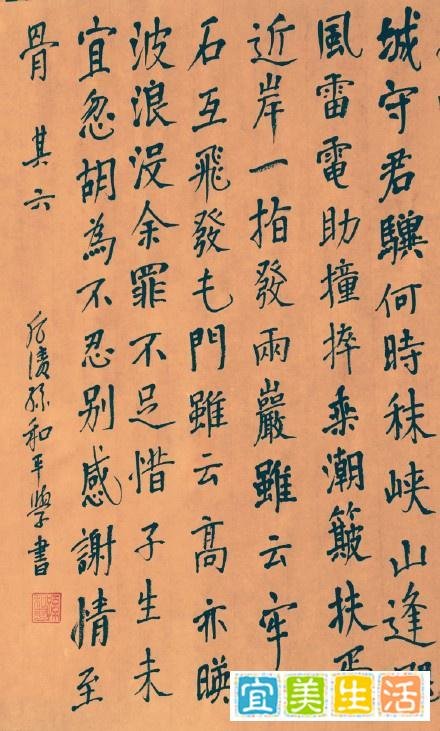 城守君驥何時秣峽山逢
風雷電助撞捽乘潮簸扶胥
近岸一指發兩巖雖云牢
石互飛發屯門雖云高亦暎
波浪沒余罪不足惜子生未
宜忽胡為不忍別感謝情至
骨 其六
孫和平學書
宜美生活